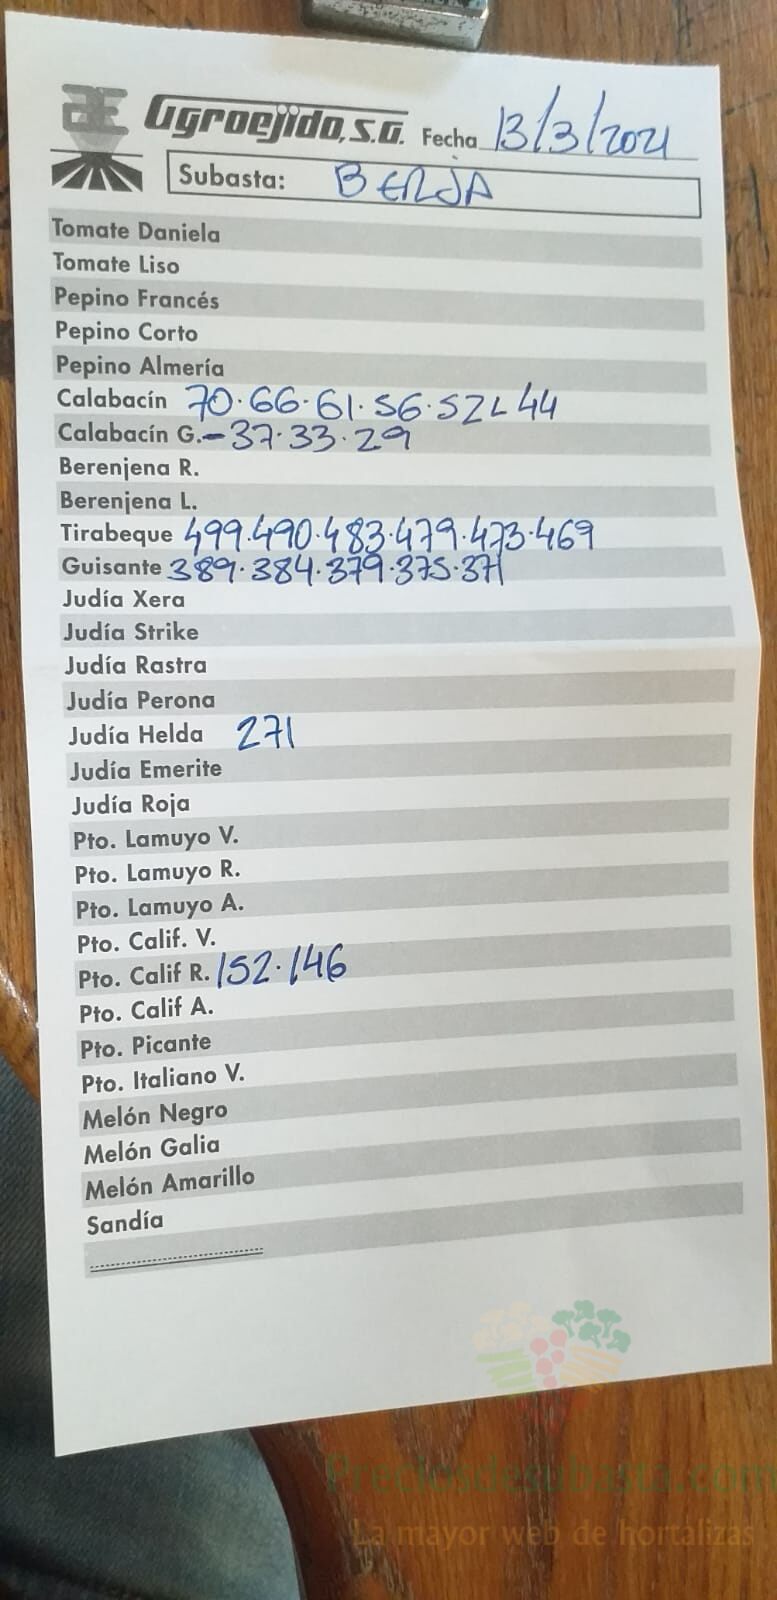 Agroejido, S.A. Fecha 13/3/2021
Subasta: BERJA
Tomate Daniela
Tomate Liso
Pepino Francés
Pepino Corto
Pepino Almería
Calabacín 70·66·61·56·52 L 44
Calabacín G.-37·33·29
Berenjena R.
Berenjena L.
Tirabeque 499·490·483·479·473·469
Guisante 389·384·379·375·371
Judía Xera
Judía Strike
Judía Rastra
Judía Perona
Judía Helda 271
Judía Emerite
Judía Roja
Pto. Lamuyo V.
Pto. Lamuyo R.
Pto. Lamuyo A.
Pto. Calif. V.
Pto. Calif R. 152·146
Pto. Calif A.
Pto. Picante
Pto. Italiano V.
Melón Negro
Melón Galia
Melón Amarillo
Sandía
Preciosdesubasta.com
La mayor web de hortalizas